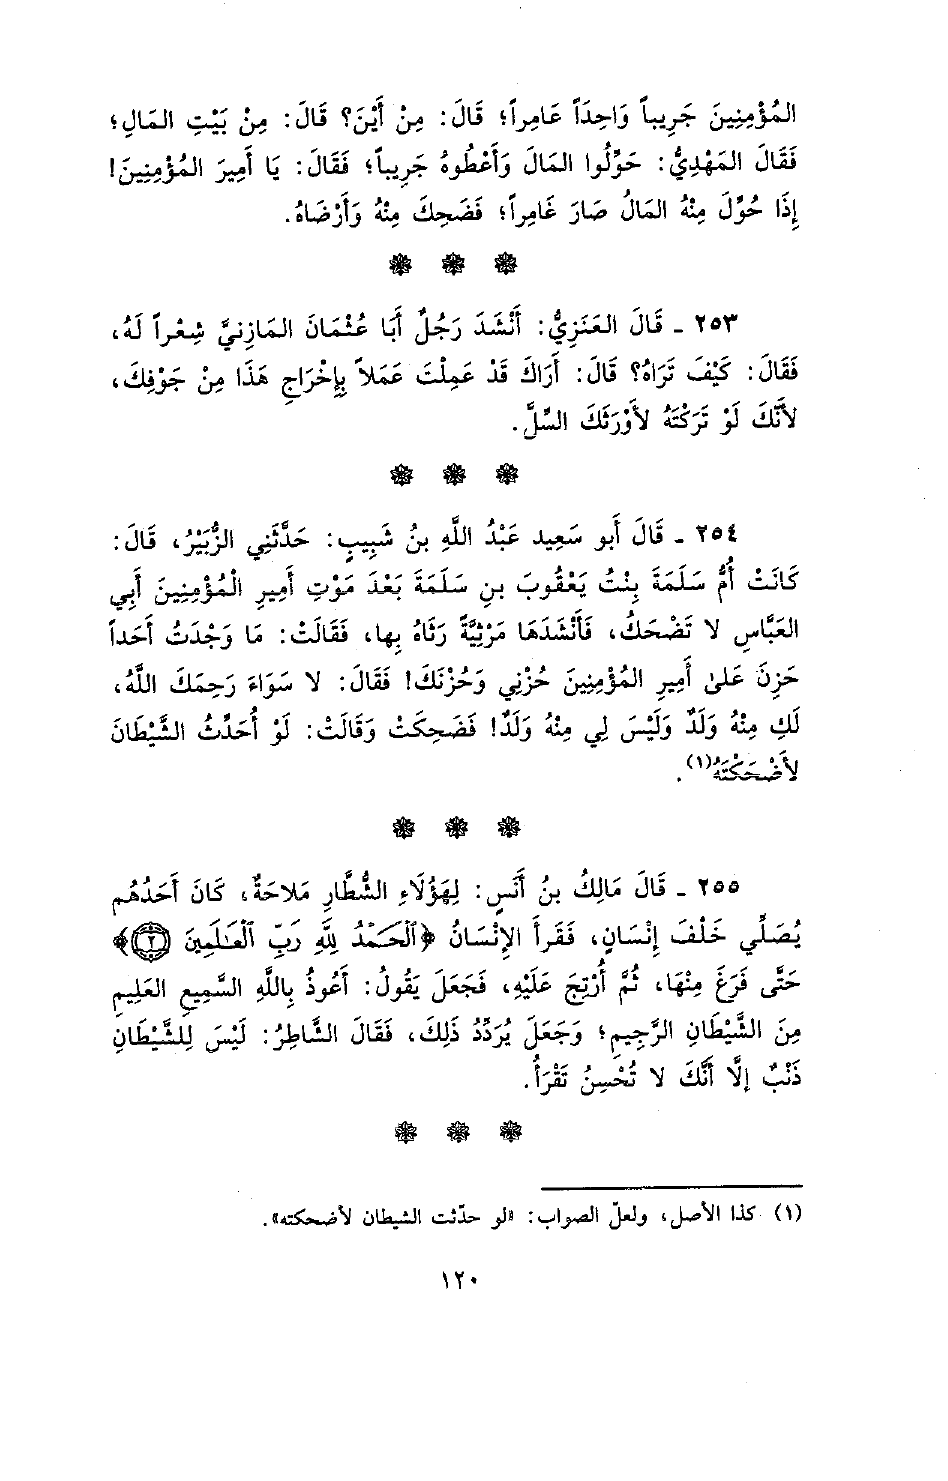 المُؤْمِنِينَ جَرِيباً وَاحِدَاً عَامِراً؛ قَالَ: مِنْ أَيْنَ؟ قَالَ: مِنْ بَيْتِ المَالِ؛
فَقَالَ المَهْدِيُّ: حَوِّلُوا المَالَ وَأَعْطُوهُ جَرِيباً؛ فَقَالَ: يَا أَمِيرَ المُؤْمِنِينَ!
إِذَا حُوِّلَ مِنْهُ المَالُ صَارَ غَامِراً؛ فَضَحِكَ مِنْهُ وَأَرْضَاهُ.
٢٥٣ ـ قَالَ العَنَزِيُّ: أَنْشَدَ رَجُلٌ أَبَا عُثْمَانَ المَازِنِيَّ شِعْراً لَهُ،
فَقَالَ: كَيْفَ تَرَاهُ؟ قَالَ: أَرَاكَ قَدْ عَمِلْتَ عَمَلاً بِإِخْرَاجِ هَذَا مِنْ جَوْفِكَ،
لأَنَّكَ لَوْ تَرَكْتَهُ لأَوْرَثَكَ السِّلَّ.
٢٥٤ ـ قَالَ أَبو سَعِيد عَبْدُ اللَّهِ بنُ شَبِيبٍ: حَدَّثَنِي الزُّبَيْرُ، قَالَ:
كَانَتْ أُمُّ سَلَمَةَ بِنْتُ يَعْقُوبَ بنِ سَلَمَةَ بَعْدَ مَوْتِ أَمِيرِ الْمُؤْمِنِينَ أَبِي
العَبَّاسِ لا تَضْحَكُ، فَأَنْشَدَهَا مَرْثِيَّةً رَثَاهُ بِها، فَقَالَتْ: مَا وَجَدَتُ أَحَداً
حَزِنَ عَلىٰ أَمِيرِ المُؤْمِنِينَ حُزْنِي وَحُزْنَكَ! فَقَالَ: لا سَوَاءَ رَحِمَكَ اللَّهُ،
لَكِ مِنْهُ وَلَدٌ وَلَيْسَ لِي مِنْهُ وَلَدٌ! فَضَحِكَتْ وَقَالَتْ: لَوْ أُحَدِّثُ الشَّيْطَانَ
لأَضْحَكْتَهُ(١).
٢٥٥ ـ قَالَ مَالِكُ بنُ أَنَسٍ: لِهَؤُلَاءِ الشُّطَّارِ مَلاحَةٌ، كَانَ أَحَدُهُم
يُصَلِّي خَلْفَ إِنْسَانٍ، فَقَرأَ الإِنْسَانُ ﴿ٱلْحَمْدُ لِلَّهِ رَبِّ ٱلْعَـٰلَمِينَ ٢﴾
حَتَّى فَرَغَ مِنْهَا، ثُمَّ أُرْتِجَ عَلَيْهِ، فَجَعَلَ يَقُولُ: أَعُوذُ بِاللَّهِ السَّمِيعِ العَلِيمِ
مِنَ الشَّيْطَانِ الرَّجِيمِ؛ وَجَعَلَ يُرَدِّدُ ذَلِكَ، فَقَالَ الشَّاطِرُ: لَيْسَ لِلشَّيْطَانِ
ذَنْبٌ إِلَّا أَنَّكَ لا تُحْسِنُ تَقْرَأُ.
(١) كذا الأصل، ولعلّ الصواب: «لو حدّثت الشيطان لأضحكته».
١٢٠